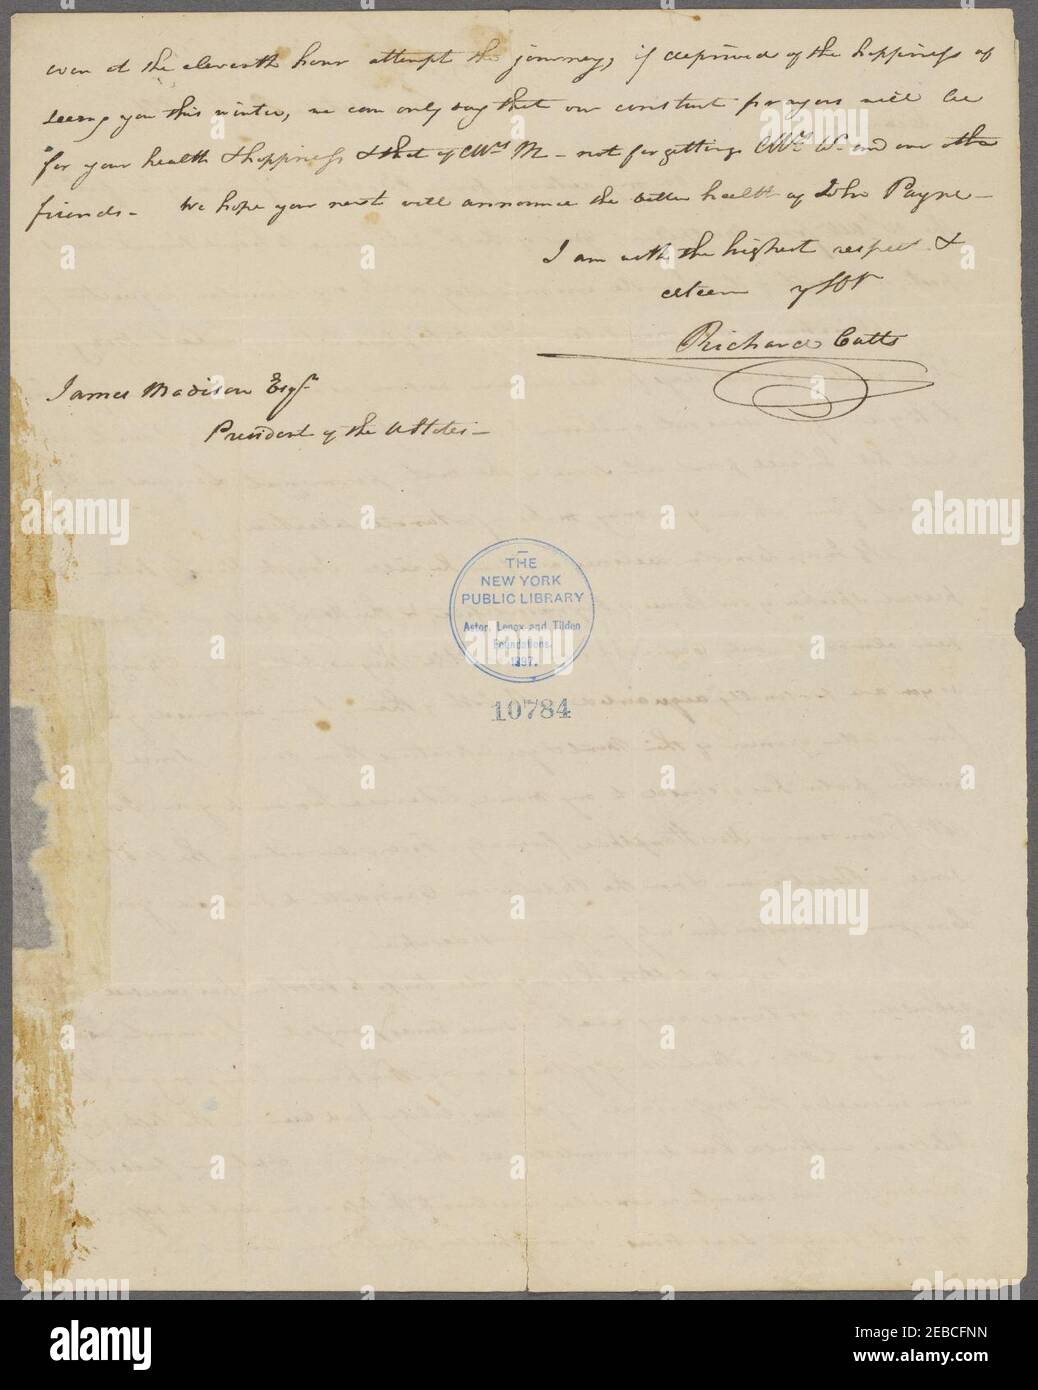 even at the eleventh hour attempt the journey, if deprived of the happiness of
seeing you this winter, we can only say that our constant prayers will be
for your health & happiness & that of Mrs M - not forgetting Mrs W. and our other
friends - We hope your next will announce the better health of John Payne -
I am with the highest respect &
esteem yr Obt
Richard Cutts
James Madison Esqr
President of the U States -
THE
NEW YORK
PUBLIC LIBRARY
Astor, Lenox and Tilden
Foundations.
1897.
10784
alamy
Image ID: 2EBCFNN
www.alamy.com